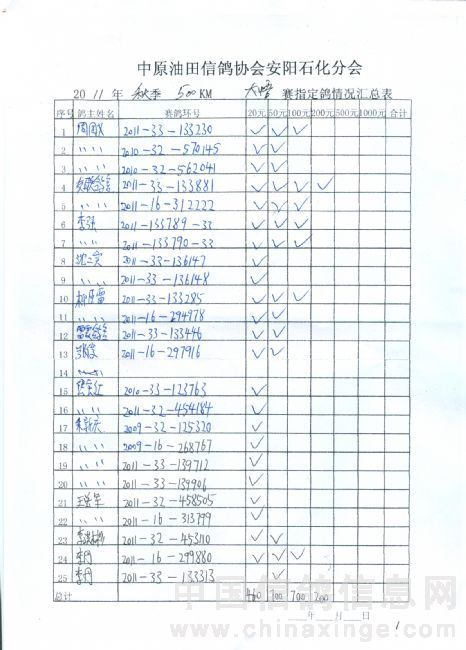 中原油田信鸽协会安阳石化分会
2011 年 秋季 500KM 大悟 赛指定鸽情况汇总表
序号 鸽主姓名 赛鸽环号 20元 50元 100元 200元 500元 1000元 合计
1 周国义 2011-33-133230 ✓ ✓ ✓
2 〃 〃 2010-32-570145 ✓ ✓
3 〃 〃 2010-32-562041 ✓ ✓
4 2011-33-133881 ✓ ✓ ✓ ✓
5 〃 〃 2011-16-312222 ✓ ✓ ✓
6 李强 2011-133789-33 ✓ ✓ ✓
7 〃 〃 2011-133790-33 ✓ ✓ ✓
8 2011-33-136147 ✓
9 〃 〃 2011-33-136148 ✓
10 2011-33-133285 ✓ ✓ ✓
11 〃 〃 2011-16-294978 ✓ ✓
12 2011-33-133446 ✓ ✓
13 2011-16-297916 ✓ ✓
14
15 2010-33-123763 ✓
16 〃 〃 2011-32-454184 ✓
17 2009-32-125320 ✓
18 〃 〃 2009-16-268767 ✓
19 〃 〃 2011-33-139712 ✓
20 〃 〃 2011-33-139906 ✓
21 2011-32-458505 ✓
22 〃 〃 2011-16-313799 ✓
23 2011-32-453110 ✓ ✓
24 李丹 2011-16-299880 ✓ ✓ ✓
25 李丹 2011-33-133313 ✓
总计 460 700 700 200
年 月 日
1
中国信鸽信息网
www.chinaxinge.com